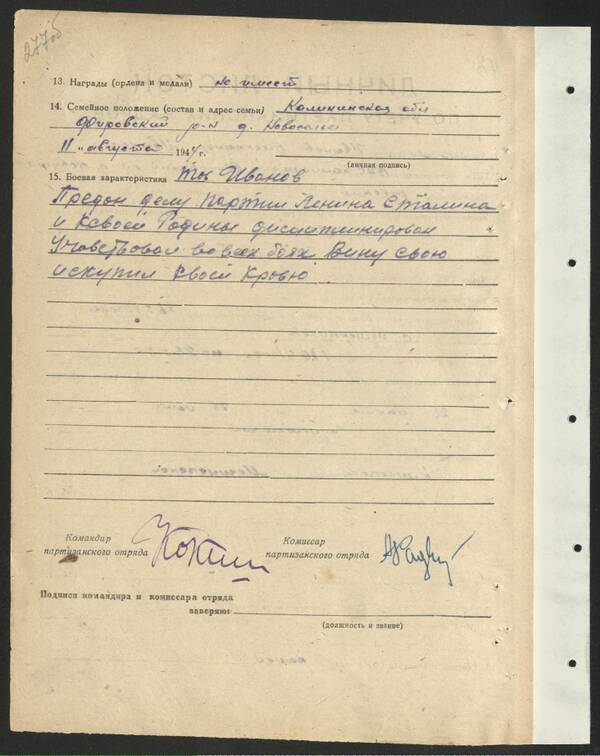 277об
13. Награды (ордена и медали) не имеет
14. Семейное положение (состав и адрес семьи) Калининская обл
Фировский р-н д. Новоселье
11 „ августа 1944 г.
(личная подпись)
15. Боевая характеристика Тов Иванов
Предон делу партии Ленина Сталина
и ксвоей Родины дисциплинирован
Учавствовал во всех боях Вину свою
искупил своей кровю
Командир
партизанского отряда
Комиссар
партизанского отряда
Подписи командира и комиссара отряда
заверяю:
(должность и звание)